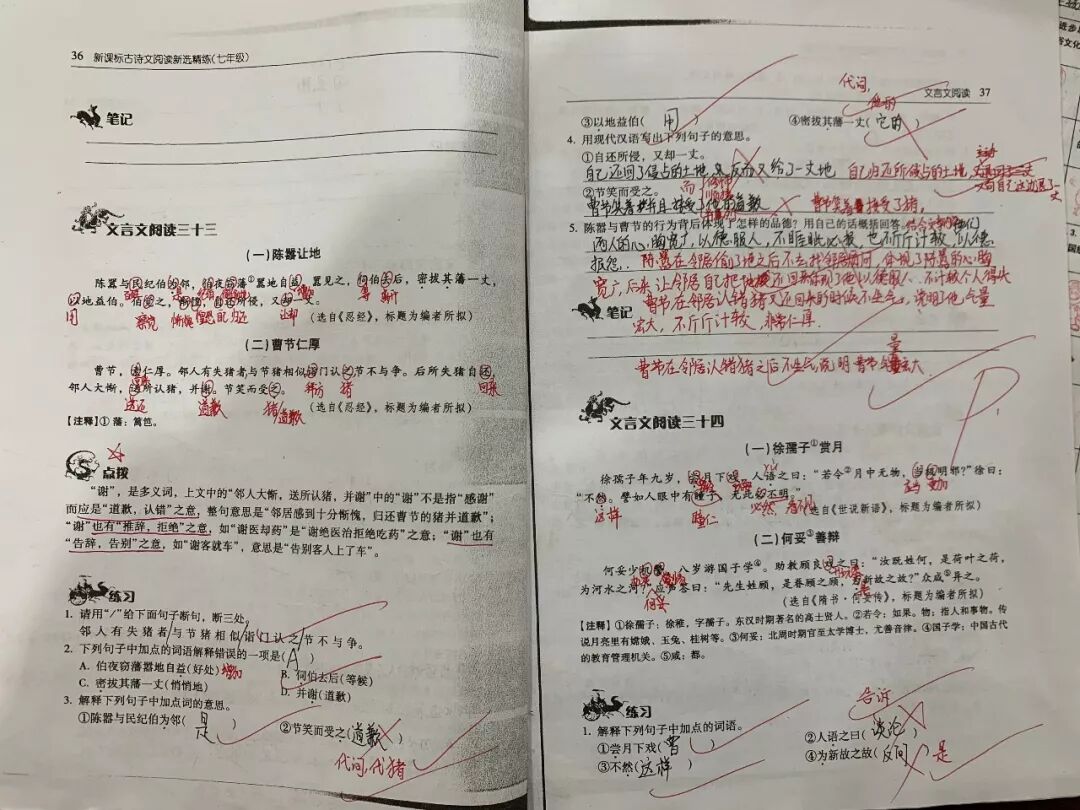 36 新课标古诗文阅读新选精练(七年级)
笔记
文言文阅读三十三
(一)陈嚣让地
陈嚣与民纪伯为邻,伯夜窃藩①嚣地自益。嚣见之,伺伯去后,密拔其藩一丈,
以地益伯。伯觉之,惭惶,自还所侵,又却一丈。
用 察觉 惭愧 归还 让却
(选自《忍经》,标题为编者所拟)
(二)曹节仁厚
曹节,素仁厚。邻人有失猪者与节猪相似诣门认之节不与争。后所失猪自还,
邻人大惭,送所认猪,并谢。节笑而受之。
拜访 猪 回来
送还 道歉 猪/道歉
(选自《忍经》,标题为编者所拟)
【注释】①藩:篱笆。
点拨
“谢”,是多义词,上文中的“邻人大惭,送所认猪,并谢”中的“谢”不是指“感谢”
而应是“道歉,认错”之意,整句意思是“邻居感到十分惭愧,归还曹节的猪并道歉”;
“谢”也有“推辞,拒绝”之意,如“谢医却药”是“谢绝医治拒绝吃药”之意;“谢”也有
“告辞,告别”之意,如“谢客就车”,意思是“告别客人上了车”。
练习
1. 请用“/”给下面句子断句,断三处。
邻人有失猪者/与节猪相似/诣门认之/节不与争。
2. 下列句子中加点的词语解释错误的一项是(A)
A. 伯夜窃藩嚣地自益(好处) 增加
B. 伺伯去后(等候)
C. 密拔其藩一丈(悄悄地)
D. 并谢(道歉)
3. 解释下列句子中加点词的意思。
①陈嚣与民纪伯为邻(是)
②节笑而受之(道歉)
代词,代猪
文言文阅读 37
代词,
他的
③以地益伯(用)
④密拔其藩一丈(它的)
4. 用现代汉语写出下列句子的意思。
①自还所侵,又却一丈。
自己还回了侵占的土地,反而又给了一丈地 自己归还所侵占的土地,
②节笑而受之。
曹节笑着并且接受了他的道歉 曹节笑着接受了猪。
5. 陈嚣与曹节的行为背后体现了怎样的品德?用自己的话概括回答。
两人的心胸宽广,以德服人,不睚眦必报,也不斤斤计较,以德
报怨。
笔记
曹节在邻居认错猪又还回来的时候不生气,说明他气量
宏大,不斤斤计较,非常仁厚.
曹节在邻居认错猪之后不生气,说明曹节气量宏大.
文言文阅读三十四
(一)徐孺子①赏月
徐孺子年九岁,尝月下戏,人语之曰:“若令②月中无物,当极明邪?”徐曰:
“不然。譬如人眼中有瞳子,无此必不明。”
这样 瞳仁 必然
(选自《世说新语》,标题为编者所拟)
(二)何妥③善辩
何妥少机警,八岁游国子学④。助教顾良戏之曰:“汝既姓何,是荷叶之荷,
为河水之河?”应声答曰:“先生姓顾,是眷顾之顾,为新故之故?”众咸⑤异之。
何妥
(选自《隋书·何妥传》,标题为编者所拟)
【注释】①徐孺子:徐稚,字孺子。东汉时期著名的高士贤人。②若令:如果。物:指人和事物。传
说月亮里有嫦娥、玉兔、桂树等。③何妥:北周时期官至太学博士,尤善音律。④国子学:中国古代
的教育管理机关。⑤咸:都。
练习
告诉
1. 解释下列句子中加点的词语。
①尝月下戏(曾)
②人语之曰(谈论)
③不然(这样)
④为新故之故(反问) 是